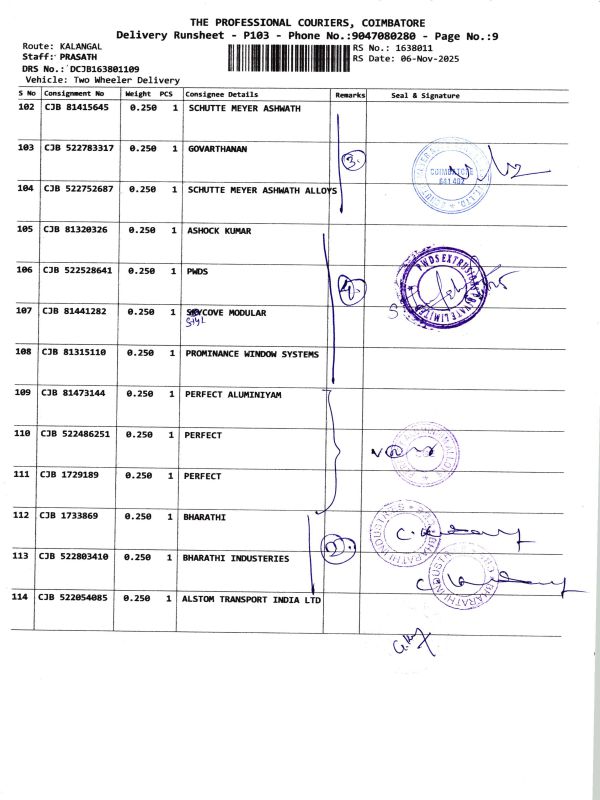 THE PROFESSIONAL COURIERS, COIMBATORE
Delivery Runsheet - P103 - Phone No.:9047080280 - Page No.:9
Route: KALANGAL RS No.: 1638011
Staff: PRASATH RS Date: 06-Nov-2025
DRS No.: DCJB163801109
Vehicle: Two Wheeler Delivery
S No Consignment No Weight PCS Consignee Details Remarks Seal & Signature
102 CJB 81415645 0.250 1 SCHUTTE MEYER ASHWATH
103 CJB 522783317 0.250 1 GOVARTHANAN
3.
COIMBATORE
641 402
104 CJB 522752687 0.250 1 SCHUTTE MEYER ASHWATH ALLOYS
105 CJB 81320326 0.250 1 ASHOCK KUMAR
106 CJB 522528641 0.250 1 PWDS
PWDS EXTRUSION PRIVATE LIMITED
107 CJB 81441282 0.250 1 COVE MODULAR
108 CJB 81315110 0.250 1 PROMINANCE WINDOW SYSTEMS
109 CJB 81473144 0.250 1 PERFECT ALUMINIYAM
110 CJB 522486251 0.250 1 PERFECT
111 CJB 1729189 0.250 1 PERFECT
112 CJB 1733869 0.250 1 BHARATHI
BHARATHI INDUSTRIES
113 CJB 522803410 0.250 1 BHARATHI INDUSTERIES
BHARATHI INDUSTRIES
114 CJB 522054085 0.250 1 ALSTOM TRANSPORT INDIA LTD